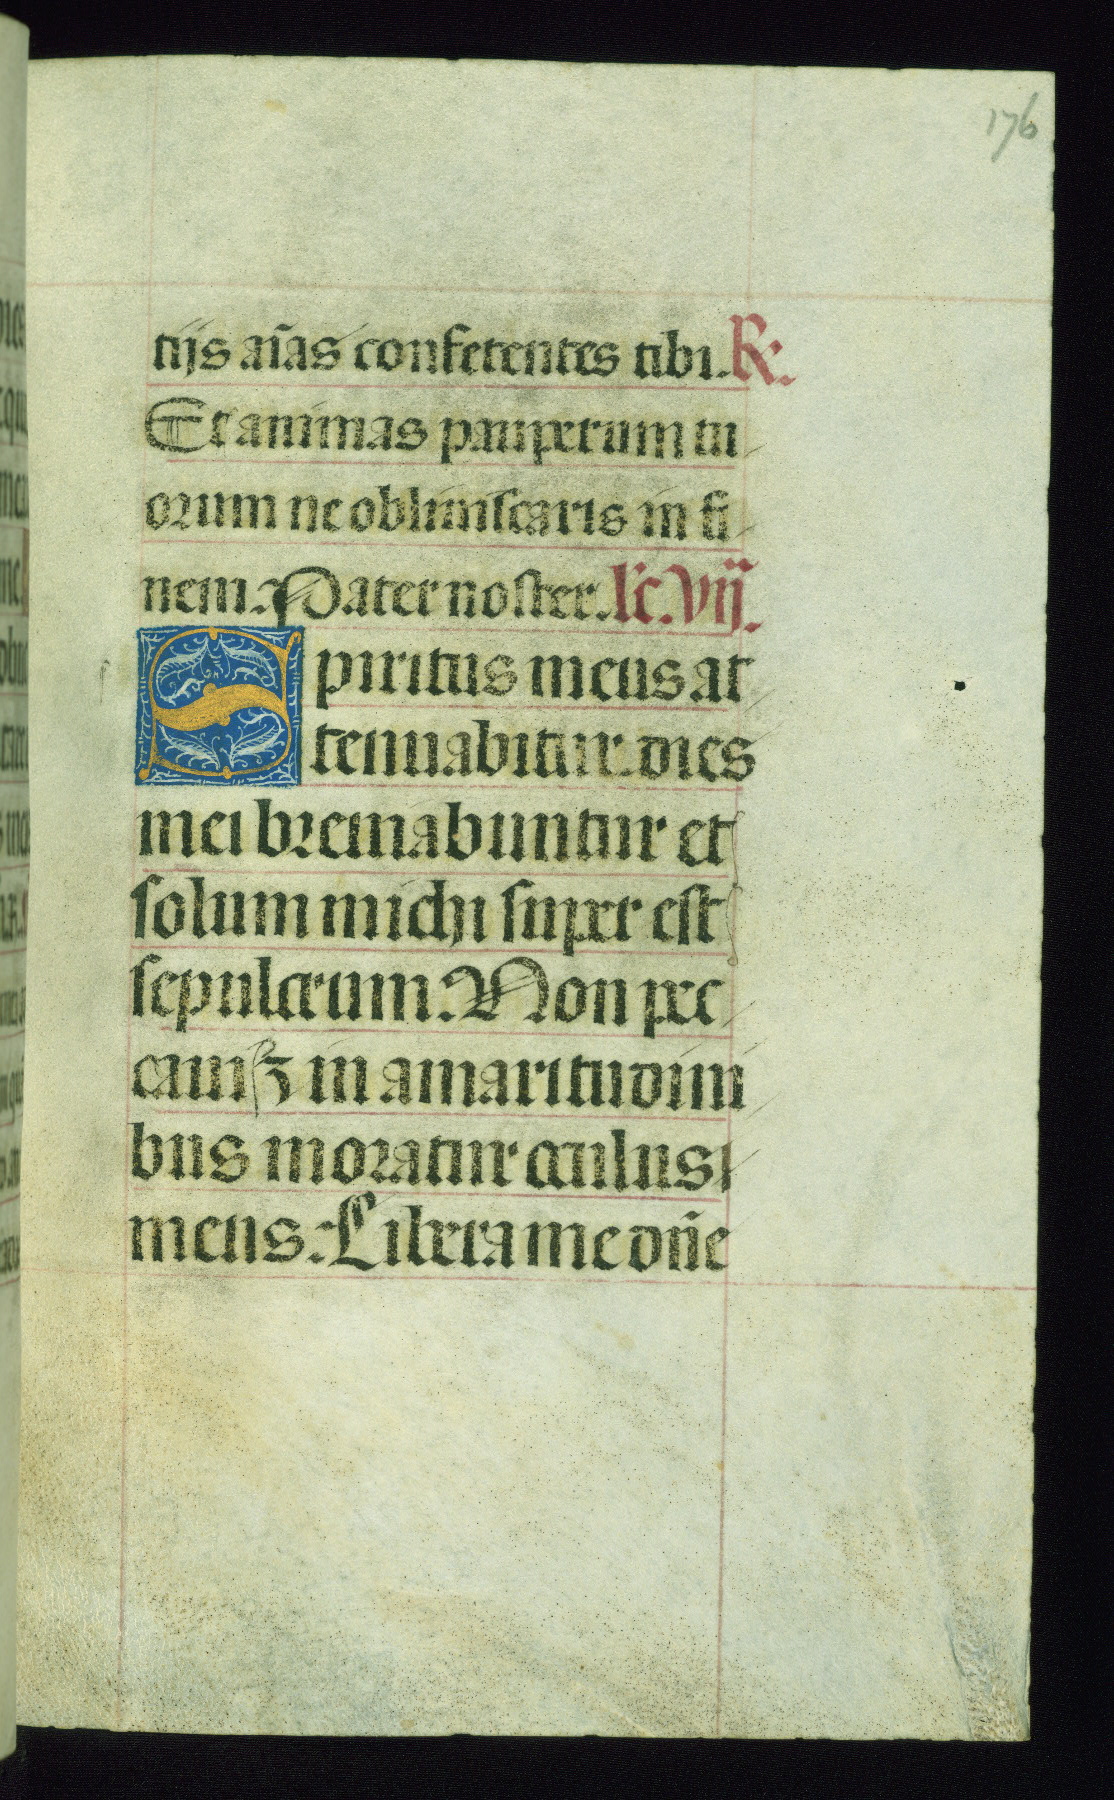 176
tijs aīas confetentes tibi. R̷.
Et animas pauperum tu
orum ne obliuiscaris in fi
nem. Pater noster. lc̄. vij.
Spiritus meus at
tenuabitur. dies
mei breuiabuntur et
solum michi super est
sepulcrum. Non pec
cauiꝫ in amaritudini
bus moratur oculus
meus. Libera me dn̄e